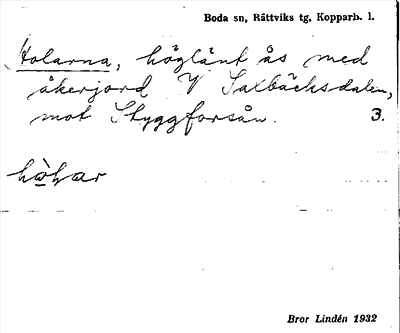 Boda sn, Rättviks tg, Kopparb. l.
Holarna, höglänt ås med
åkerjord V Saxbäcksdalen,
mot Styggforsån. 3.
Bror Lindén 1932